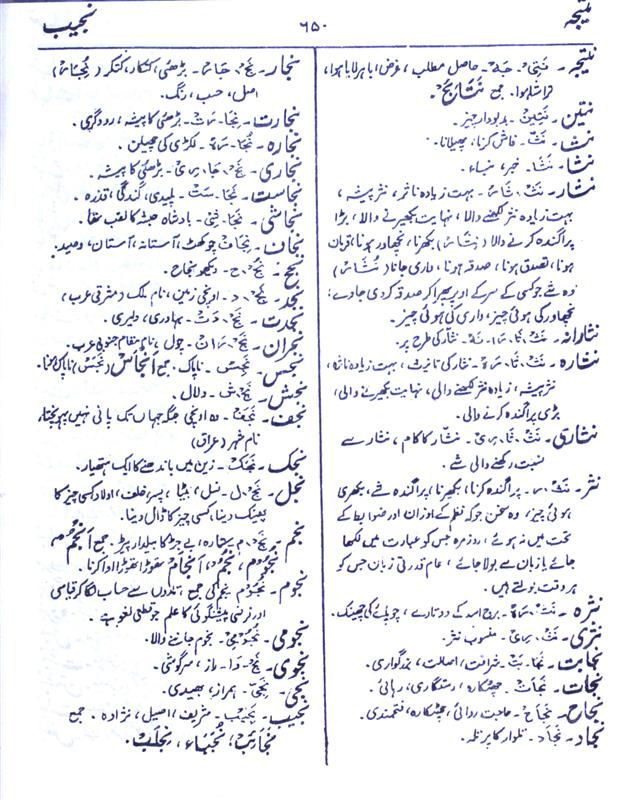 نتیجہ
۶۵۰
نجیب
نتیجہ ۔ نَتِیْ۔ جَہْ۔ حاصل مطلب، غرض، باہر لایا ہوا،
تراشا ہوا۔ جمع نَتَائِجْ۔
نتین ۔ نَتِیْنْ۔ بدبودار چیز۔
نث ۔ نَثّ۔ فاش کرنا، پھیلانا۔
نثا ۔ نَثَا۔ خبر،
نثار ۔ نَثْ، ثَارْ۔ بہت زیادہ ناثر، نثر پیشہ،
بہت زیادہ نثر لکھنے والا، نہایت بکھیرنے والا، بڑا
پراگندہ کرنے والا (نِثَارْ) بکھرنا، نچھاور ہونا، قربان
ہونا، تصدق ہونا، صدقہ ہونا، واری جانا (نُثَارْ)
وہ شے جو کسی کے سر کے اوپر پھیرا کر صدقہ کر دی جاوے،
نچھاور کی ہوئی چیز، واری گئی ہوئی چیز۔
نثارانہ ۔ نَثْ، ثَا، رَا، نَہْ۔ نثار کی طرح پر۔
نثارہ ۔ نَثْ، ثَا، رَہْ۔ نثار کی تانیث، بہت زیادہ ناثرہ،
نثر پیشہ، زیادہ نثر لکھنے والی، نہایت بکھیرنے والی،
بڑی پراگندہ کرنے والی۔
نثاری ۔ نَثْ، ثَا، رِیْ۔ نثار کا کام، نثار سے
نسبت رکھنے والی شے۔
نثر ۔ نَثْ، رْ۔ پراگندہ کرنا، بکھیرنا، پراگندہ شے، بکھری
ہوئی چیز، وہ سخن جو کہ نظم کے اوزان اور ضوابط کے
تحت میں نہ ہوئے، روزمرہ جس کو عبارت میں لکھا
جائے یا زبان سے بولا جائے، عام قدرتی زبان جس کو
ہر وقت بولتے ہیں۔
نثرہ ۔ نَثْ، رَہْ۔ برج اسد کے دو تارے، چوپائے کی چھینک۔
نثری ۔ نَثْ، رِیْ۔ منسوب نثر۔
نجابت ۔ نَجَا۔ بَتْ۔ شرافت، اصالت، بزرگواری۔
نجات ۔ نَجَاتْ۔ چھٹکارہ، رستگاری، رہائی۔
نجاح ۔ نَجَاحْ۔ حاجت روائی، چھٹکارہ، فتحمندی۔
نجاد ۔ نِجَادْ۔ تلوار کا پرتلہ۔
نجار ۔ نَجْ، جَارْ۔ بڑھئی، (نُجَارْ)
اصل، حسب، رنگ۔
نجارت ۔ نِجَا۔ رَتْ۔ بڑھئی کا پیشہ، رودگری۔
نجارہ ۔ نُجَا۔ رَہْ۔ لکڑی کی چھیلن۔
نجاری ۔ نَجْ، جَا، رِیْ۔ بڑھئی کا پیشہ۔
نجاست ۔ نَجَا۔ سَتْ۔ پلیدی، گندگی،
نجاشی ۔ نَجَا۔ شِیْ۔ بادشاہ حبشہ کا لقب تھا۔
نجاف ۔ نِجَافْ چوکھٹ، آستانہ، آستان، وصید۔
نجح ۔ نُجْ، حْ۔ دیکھو نجاح۔
نجد ۔ نَجْ، دْ۔ اونچی زمین، نام ملک (مشرقی عرب)
نجدت ۔ نَجْ، دَتْ۔ بہادری، دلیری۔
نجران ۔ نَجْ، رَانْ۔ چول، نام مقام جنوبی عرب۔
نجس ۔ نَجِسْ۔ ناپاک۔ جمع اَنْجَاسْ (نَجَسْ) ناپاک ہونا۔
نجش ۔ نَجْ، شْ۔ دلال۔
نجف ۔ نَجَفْ۔ وہ اونچی جگہ جہاں تک پانی نہیں پہونچتا،
نام شہر (عراق)
نجک ۔ نَجَکْ۔ زین میں باندھنے کا ایک ہتھیار۔
نجل ۔ نَجْ، لْ۔ نسل، بیٹا، پسر، خلف، اولاد، کسی چیز کا
پھینک دینا، کسی چیز کا ڈال دینا۔
نجم ۔ نَجْ، مْ ستارہ، بے جڑ کا بیلدار پیڑ۔ جمع اَنْجُمْ،
نُجُوْمْ، نُجُمْ، اَنْجَامْ تھوڑا تھوڑا ادا کرنا۔
نجوم ۔ نُجُوْمْ نجم کی جمع، تاروں سے حساب لگا کر قیاسی
اور فرضی پیشنگوئی کا علم جو قطعی لغو ہے۔
نجومی ۔ نُجُوْمِیْ۔ نجوم جاننے والا۔
نجوی ۔ نَجْ، وَا۔ راز، سرگوشی۔
نجی ۔ نَجِیّ۔ ہمراز، بھیدی۔
نجیب ۔ نَجِیْبْ۔ شریف، اصیل، نژادہ۔ جمع
نَجَائِبْ، نُجَبَاء،